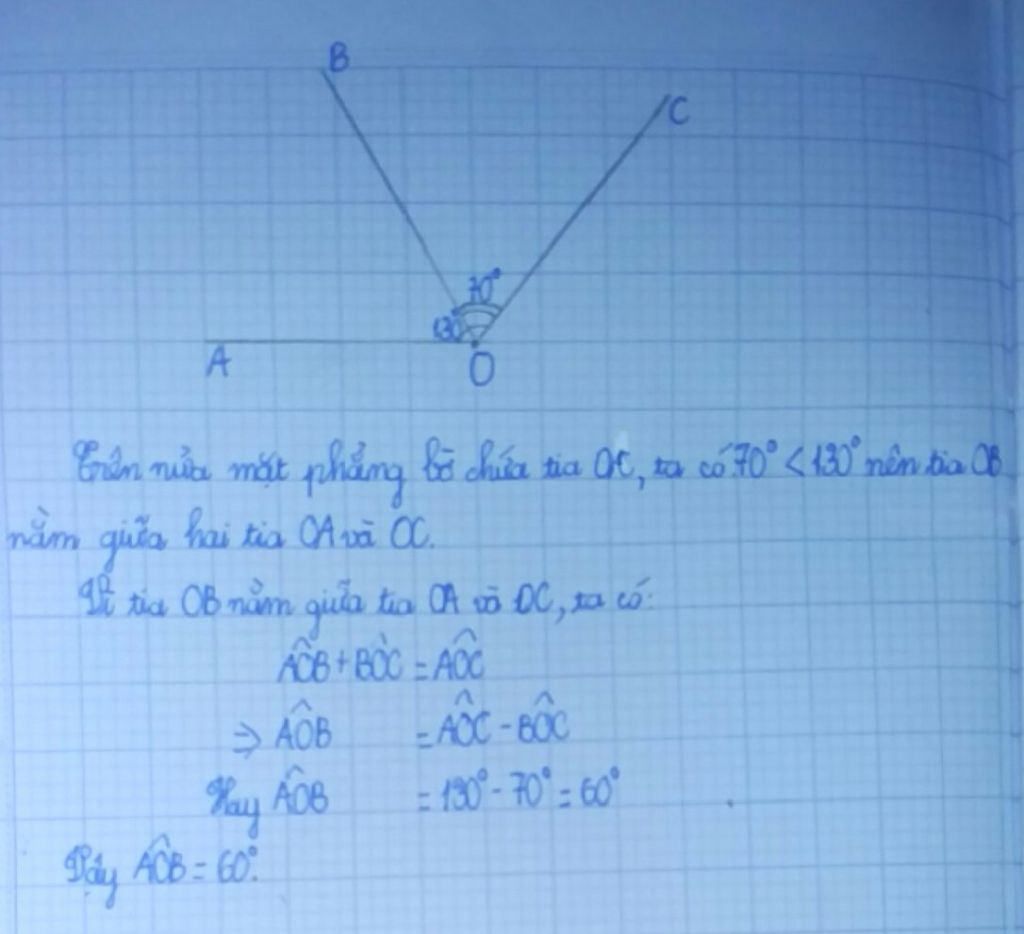 B
C
70°
130°
A
O
Trên nửa mặt phẳng bờ chứa tia OC, ta có 70° < 130° nên tia OB
nằm giữa hai tia OA và OC.
Vì tia OB nằm giữa tia OA và OC, ta có:
AÔB + BÔC = AÔC
⇒ AÔB = AÔC - BÔC
Hay AÔB = 130° - 70° = 60°
Vậy AÔB = 60°.